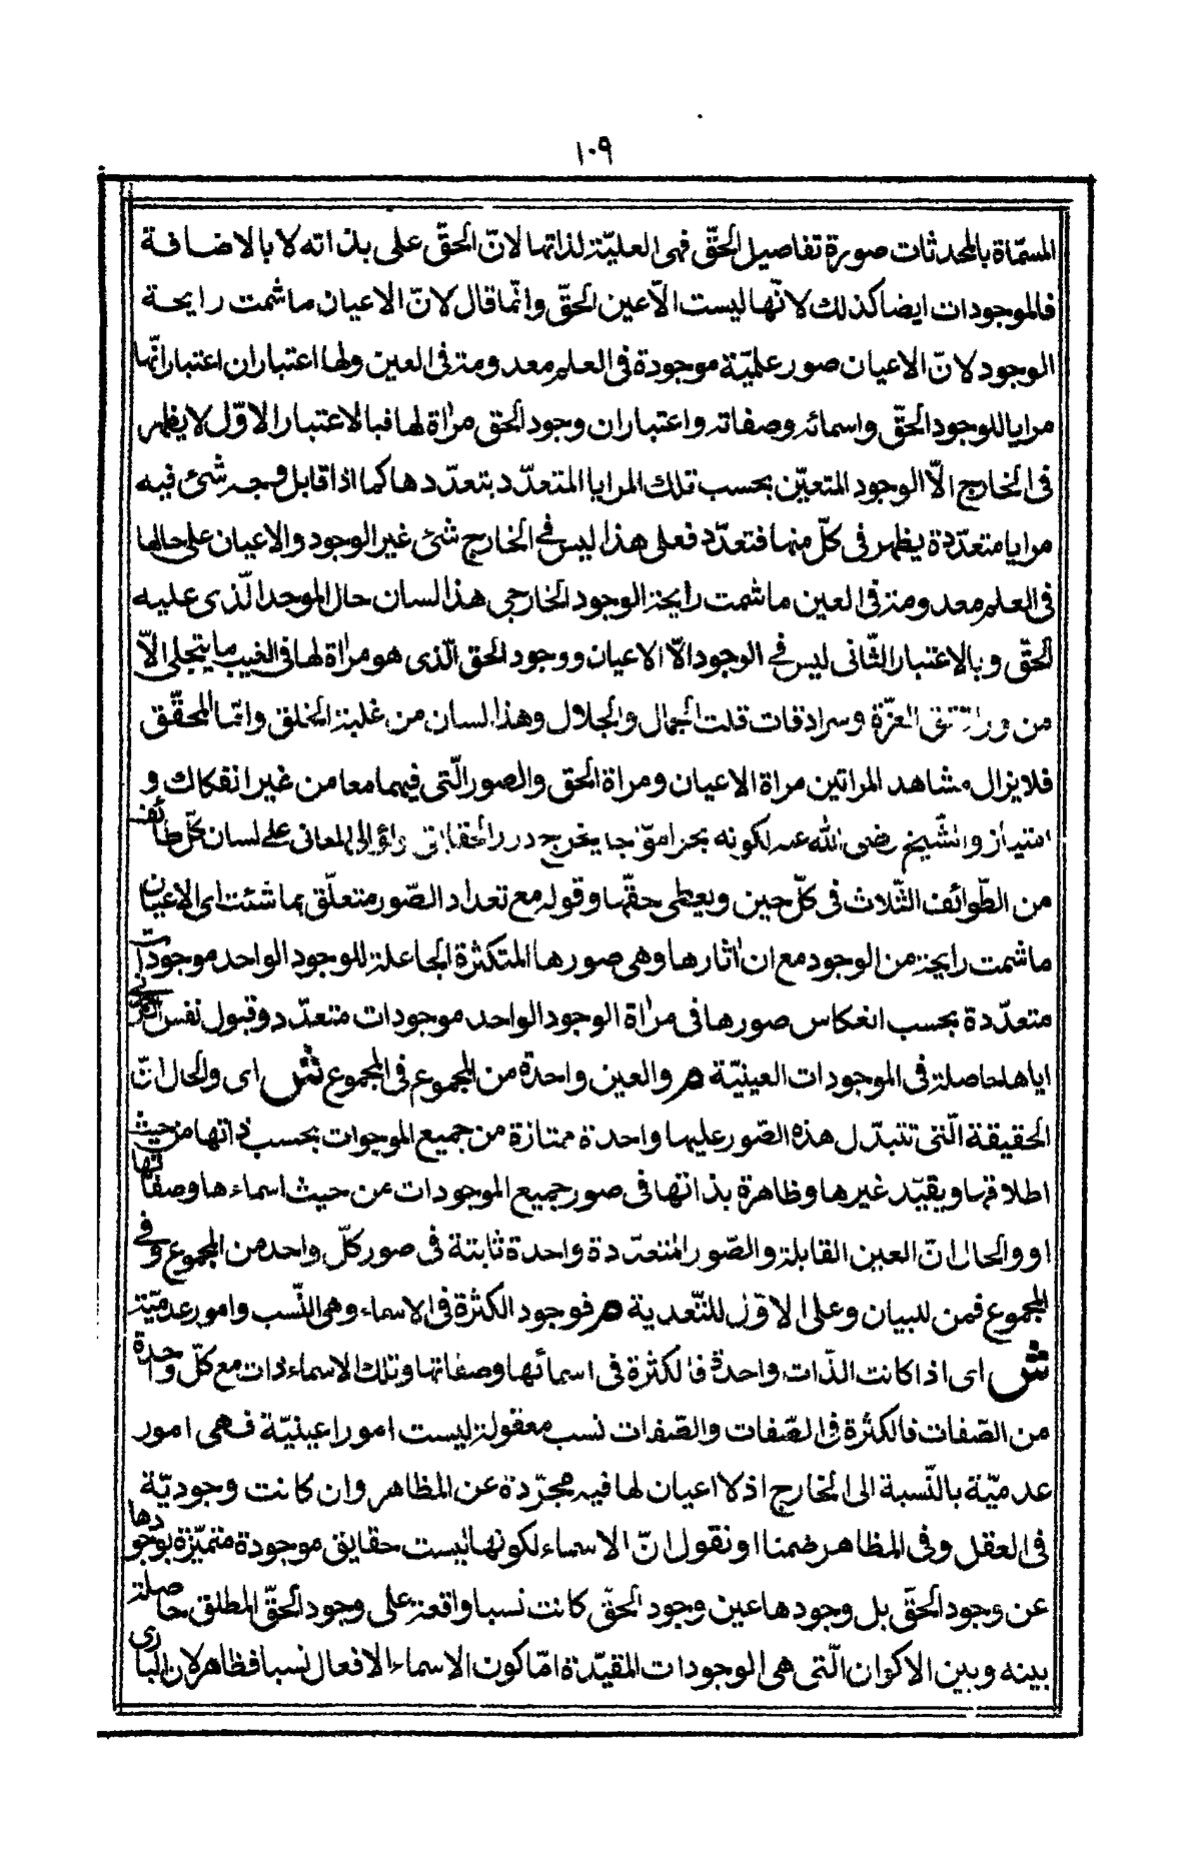 ١٠٩
المسمّاة بالمحدثات صورة تفاصيل الحقّ فهى العليّة لذاتها لانّ الحقّ على بذاته لا بالاضافة
فالموجودات ايضا كذلك لانّها ليست الّا عين الحقّ وانّما قال لانّ الاعيان ما شمت رايحة
الوجود لانّ الاعيان صور علميّة موجودة فى العلم معدومة فى العين ولها اعتباران اعتبار انّها
مرايا للوجود الحقّ واسمائه وصفاته واعتبار ان وجود الحق مرأة لها فبالاعتبار الاوّل لا يظهر
فى الخارج الّا الوجود المتعيّن بحسب تلك المرايا المتعدّد بتعدّدها كما اذا قابل وجه شئ فيه
مرايا متعدّدة يظهر فى كلّ منها فتعدّد فعلى هذا ليس فى الخارج شئ غير الوجود والاعيان على حالها
فى العلم معدومة فى العين ما شمت رايحة الوجود الخارجى هذا لسان حال الموحد الّذى عليه
الحقّ وبالاعتبار الثّانى ليس فى الوجود الّا الاعيان ووجود الحق الّذى هو مرأة لها فى الغيب ما يتجلى الّا
من ورا العزّة وسرادقات الجمال والجلال وهذا لسان من غلبة الخلق وامّا المحقّق
فلا يزال مشاهد المراتين مراة الاعيان ومراة الحق والصور الّتى فيهما معا من غير انفكاك و
امتياز والشّيخ رضى الله عنه لكونه بحرا موّاجا يخرج درر الحقايق ولؤالى المعانى على لسان كلّ طائفة
من الطّوائف الثّلاث فى كلّ حين ويعطى حقّها وقوله مع تعداد الصّور متعلّق بما شئت اى الاعيان
ما شمت رايحة من الوجود مع ان اثارها وهى صورها المتكثرة الجاعلة للوجود الواحد موجودات
متعدّدة بحسب انعكاس صورها فى مرأة الوجود الواحد موجودات متعدّد وقبول نفس
اياها حاصلة فى الموجودات العينيّة ص والعين واحدة من المجموع فى المجموع ش اى والحال انّ
الحقيقة الّتى تتبدّل هذه الصّور عليها واحدة ممتازة من جميع الموجوات بحسب ذاتها من حيث
اطلاقها ويقيّد غيرها وظاهرة بذاتها فى صور جميع الموجودات من حيث اسماءها وصفاتها
او والحال انّ العين القابلة والصّور المتعدّدة واحدة ثابتة فى صور كلّ واحد من المجموع وفى
المجموع فمن للبيان وعلى الاوّل للتّعدية ص فوجود الكثرة فى الاسماء وهى النّسب وامور عدميّة
ش اى اذا كانت الذّات واحدة فالكثرة فى اسمائها وصفاتها وتلك الاسماء ذات مع كلّ واحدة
من الصّفات فالكثرة فى الصّفات والصّفات نسب معقولة ليست امورا عينيّة فهى امور
عدميّة بالنّسبة الى الخارج اذ لا اعيان لها فيه مجرّدة عن المظاهر وان كانت وجوديّة
فى العقل وفى المظاهر ضمنا او نقول انّ الاسماء لكونها ليست حقايق موجودة متميّزة بوجودها
عن وجود الحقّ بل وجودها عين وجود الحقّ كانت نسبا واقعة على وجود الحقّ المطلق حاصلة
بينه وبين الاكوان الّتى هى الوجودات المقيّدة امّا كون الاسماء الافعال نسبا فظاهر لان البارى